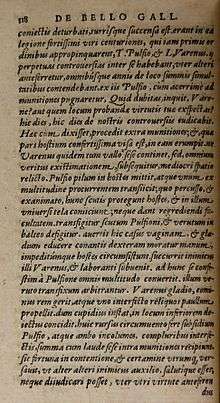 118 DE BELLO GALL.
coniectis deturbati, turrisque succensa est. erant in ea
legione fortissimi viri centuriones, qui iam primis or
dinibus appropinquarent, T. Pulfio, & L. Varenus. hi
perpetuas controuersias inter se habebant, vter alteri
anteferretur, omnibusque annis de loco summis simul
tatibus contendebant. ex iis Pulfio, cum acerrimè ad
munitiones pugnaretur, Quid dubitas, inquit, Vare
ne? aut quem locum probandæ virtutis tuæ expectas?
hic dies, hic dies de nostris controuersiis iudicabit.
Hæc cum dixisset, procedit extra munitiones, & qua
pars hostium confertissima visa est, in eam irrumpit. nec
Varenus quidem tum vallo sese continet, sed, omnium
veritus existimationem, subsequitur. mediocri spatio
relicto, Pulfio pilum in hostes mittit, atque vnum, ex
multitudine procurrentem traiicit, quo percusso, &
exanimato, hunc scutis protegunt hostes, & in illum
vniuersi tela coniiciunt, neque dant regrediendi fa
cultatem. transfigitur scutum Pulfioni, & verutum in
balteo defigitur. auertit hic casus vaginam, & gladium
educere conantis dexteram moratur manum:
impeditumque hostes circumsistunt. succurrit inimicus
illi Varenus, & laboranti subuenit. ad hunc se confe
stim à Pulfione omnis multitudo conuertit. illum ve
ruto transfixum arbitrantur. Varenus gladio, comi
nus rem gerit, atque vno interfecto reliquos paulum
propellit. dum cupidius instat, in locum inferiorem de
iectus concidit. huic rursus circumuento fert subsidium
Pulfio, atque ambo incolumes, compluribus interfe
ctis, summa cum laude sese intra munitiones recipiunt.
sic fortuna in contentione, & certamine vtrumque versauit,
vt alter alteri inimicus auxilio, salutique esset,
neque diiudicari posset, vter vtri virtute anteferen
dus